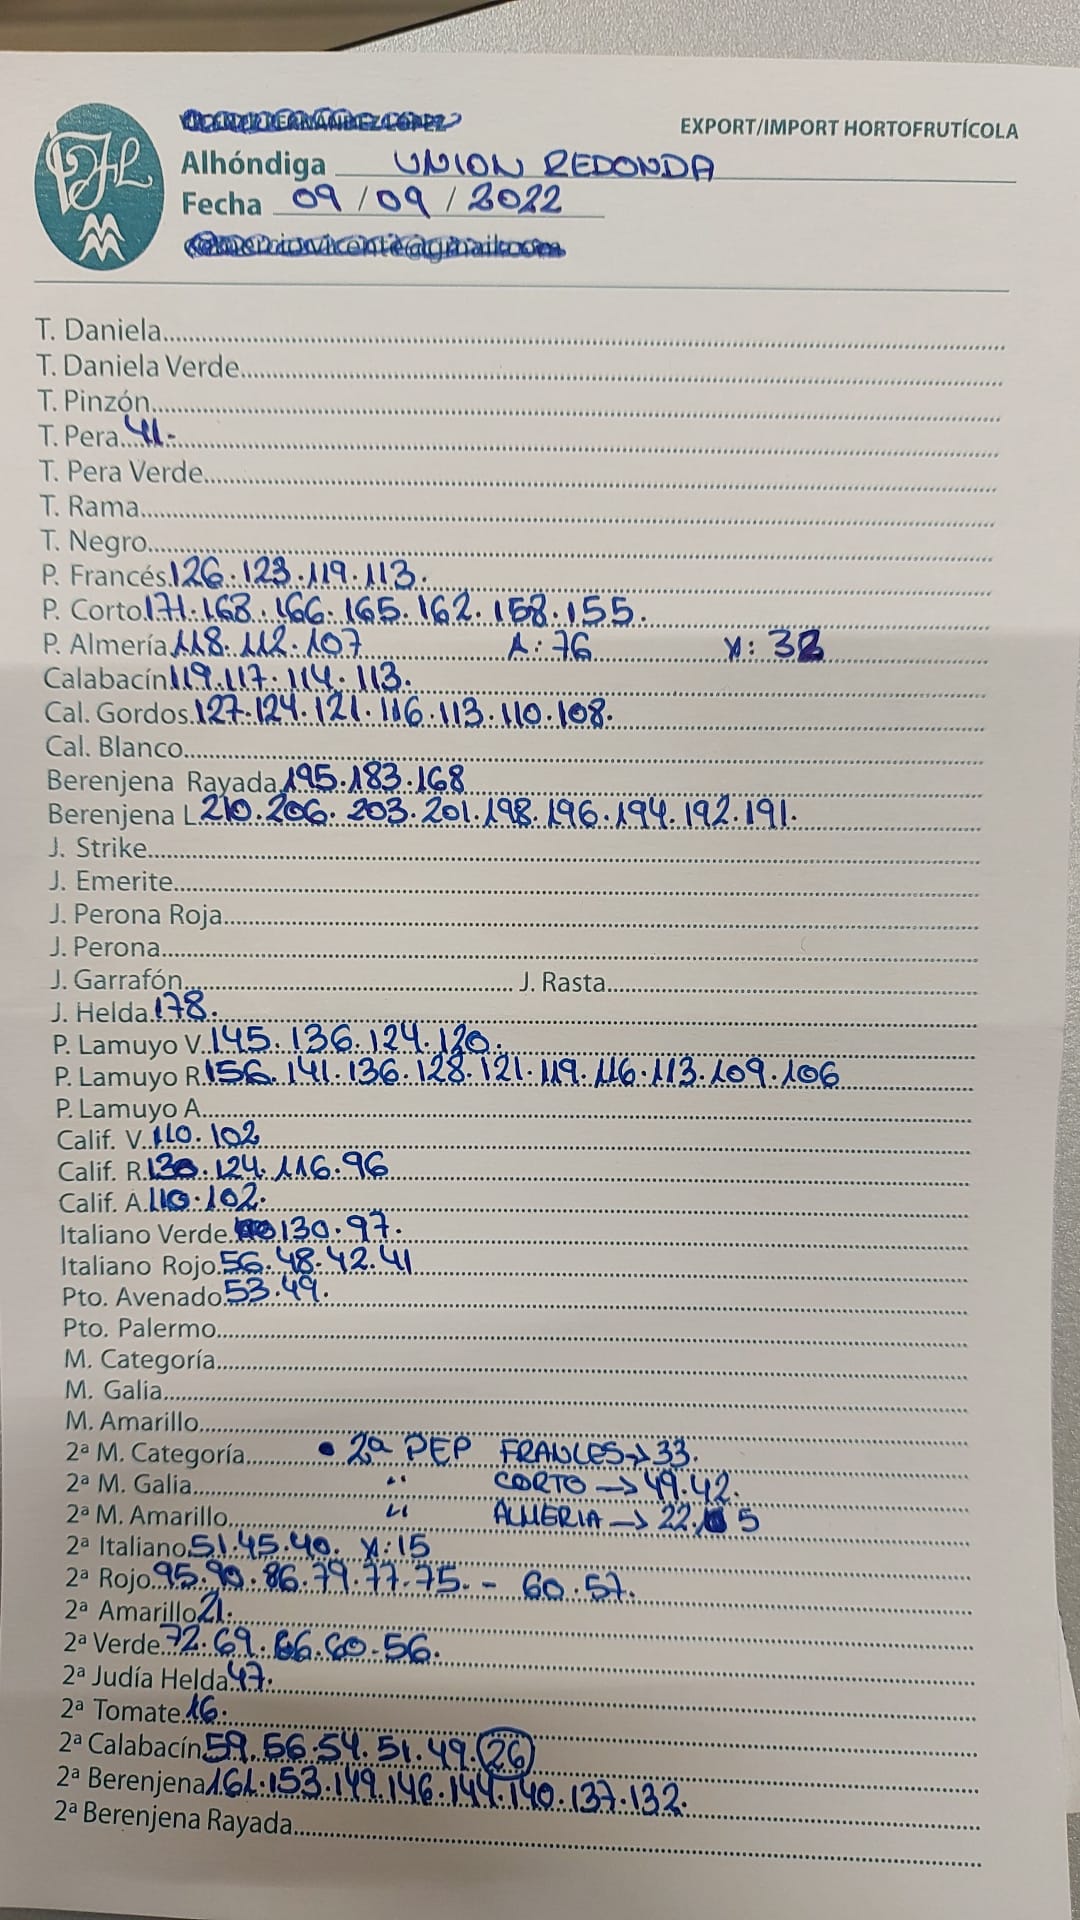 EXPORT/IMPORT HORTOFRUTÍCOLA
Alhóndiga UNION REDONDA
Fecha 09/09/2022
T. Daniela
T. Daniela Verde
T. Pinzón
T. Pera 41.-
T. Pera Verde
T. Rama
T. Negro
P. Francés 126.123.119.113.
P. Corto 171.168.166.165.162.158.155.
P. Almería 118.112.107 A: 76 X: 32
Calabacín 119.117.114.113.
Cal. Gordos 127.124.121.116.113.110.108.
Cal. Blanco
Berenjena Rayada 195.183.168
Berenjena L 210.206.203.201.198.196.194.192.191.
J. Strike
J. Emerite
J. Perona Roja
J. Perona
J. Garrafón J. Rasta
J. Helda 178.
P. Lamuyo V. 145.136.124.120.
P. Lamuyo R 156.141.136.128.121.119.116.113.109.106
P. Lamuyo A
Calif. V. 110.102
Calif. R. 130.124.116.96
Calif. A. 110.102.
Italiano Verde 130.97.
Italiano Rojo 56.48.42.41
Pto. Avenado 53.49.
Pto. Palermo
M. Categoría
M. Galia
M. Amarillo
2ª M. Categoría • 2ª PEP FRANCES→33.
2ª M. Galia " CORTO →49.42.
2ª M. Amarillo " ALMERIA → 22. 5
2ª Italiano 51.45.40. X:15
2ª Rojo 95.90.86.79.77.75. - 60.57.
2ª Amarillo 21.
2ª Verde 72.69.66.60.56.
2ª Judía Helda 47.
2ª Tomate 16.
2ª Calabacín 59.56.54.51.49.26
2ª Berenjena 161.153.149.146.144.140.137.132.
2ª Berenjena Rayada